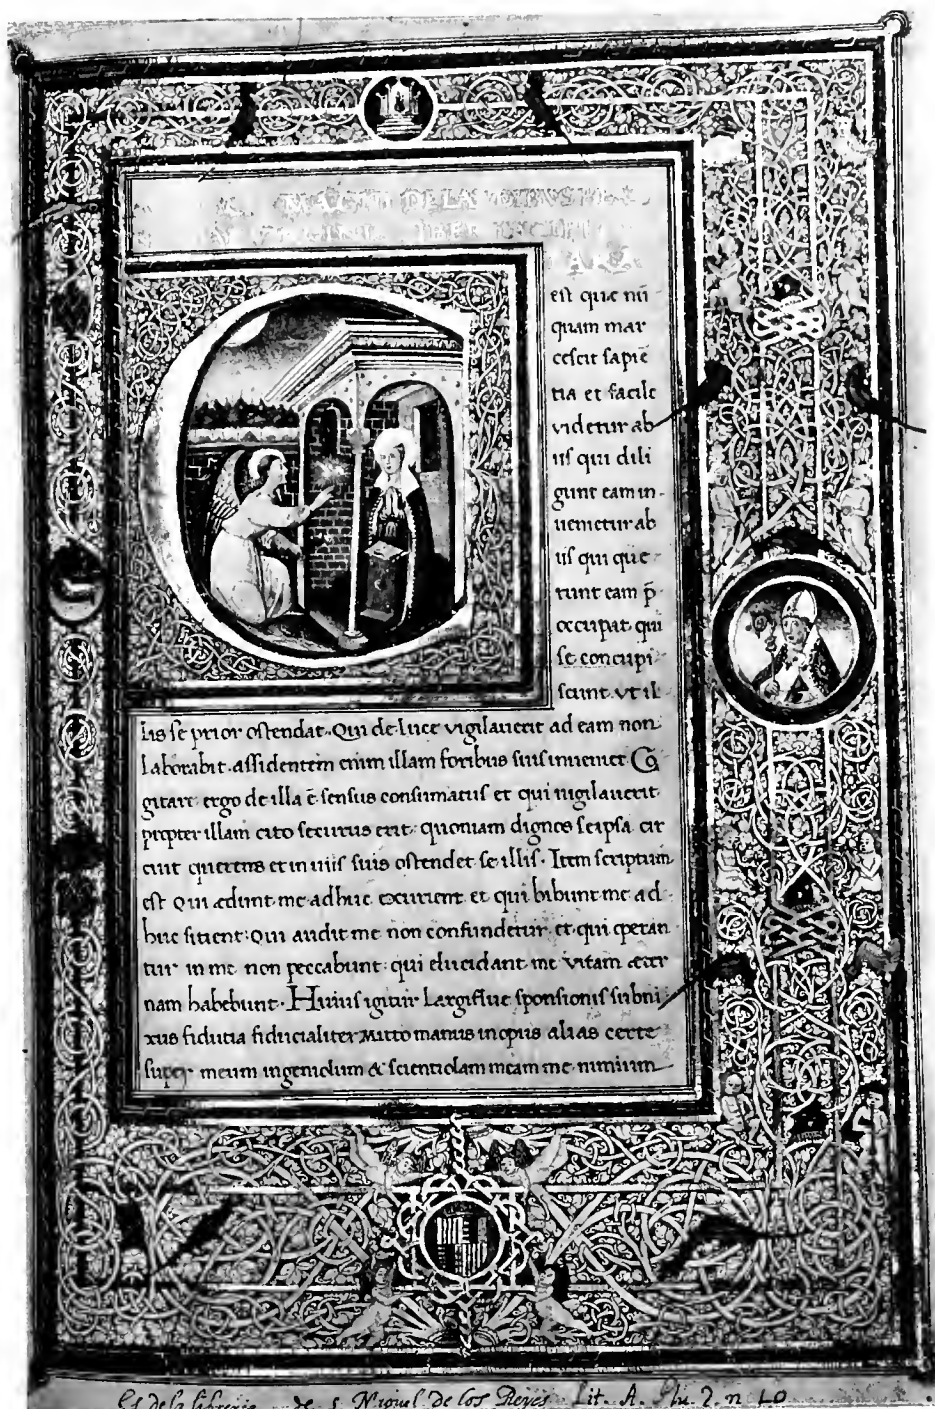 DE LAVDIBVS
LIBER INCIPIT
est que nū
quam mar
cescit sapiē
tia et facile
videtur ab
iis qui dili
gunt eam in
uenietur ab
iis qui que
runt eam p̄
occupat qui
se concupi
scunt. vt il
lis se prior ostendat. Qui de luce vigilauerit ad eam non
laborabit. assidentem enim illam foribus suis inueniet. Co
gitare ergo de illa ē sensus consumatus et qui uigilauerit
propter illam cito securus erit. quoniam dignos se ipsa cir
cuit querens et in uiis suis ostendet se illis. Item scriptum
est Qui ædunt me adhuc exurient et qui bibunt me ad
huc sitient: Qui audit me non confundetur. et qui operan
tur in me non peccabunt: qui elucidant me vitam æter
nam habebunt. Huius igitur largiflue sponsionis subni
xus fidutia fiducialiter mitto manus in opus alias certe
super meum ingeniolum & scientiolam meam me nimium
Es de la libreria de s. Miguel de los Reyes Lit. A. Plu. 2. n 10